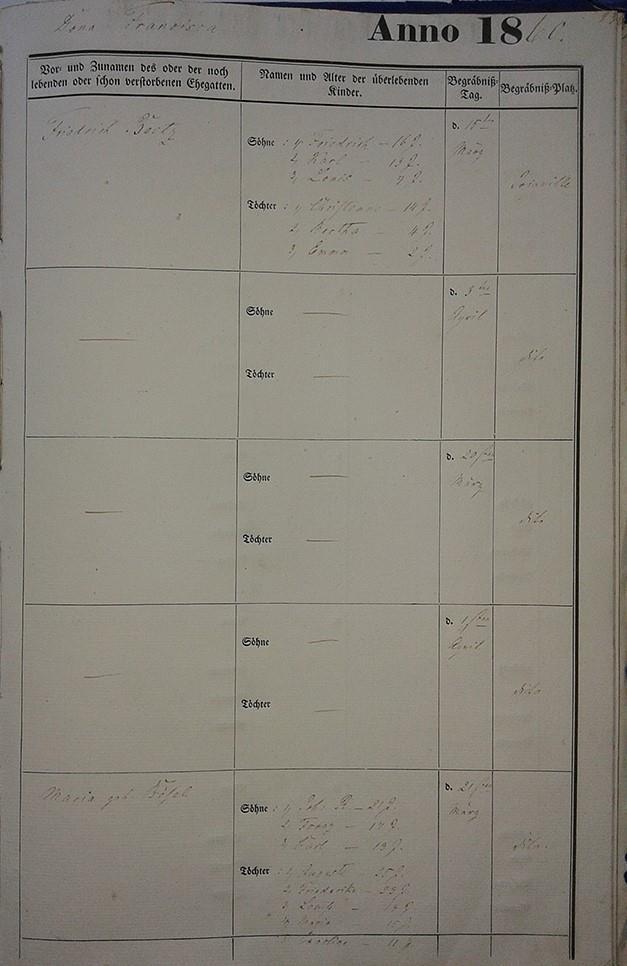 Dona Francisca
Anno 1860.
Vor- und Zunamen des oder der noch
lebenden oder schon verstorbenen Ehegatten.
Namen und Alter der überlebenden
Kinder.
Begräbniß-
Tag.
Begräbniß-Platz.
Friedrich
Söhne : 1, Friedrich – 16 J.
2, Karl – 13 J.
3, Louis – 7 J.
Töchter : 1, Christiane – 14 J.
2, Bertha – 4 J.
3, Emma – 2 J.
d. 15ten
März
Joinville
Söhne —
Töchter —
d. 3ten
April
dito
Söhne —
Töchter —
d.
März
dito
Söhne —
Töchter —
d. 1sten
April
dito
Maria geb.
Söhne : 1, Joh. – 21 J.
2, Franz – 17 J.
3, Carl – 13 J.
Töchter : 1, Auguste
2, Friederike
3, Louise
4, Maria
5, Caroline – 11 J.
d. 21sten
März
dito.